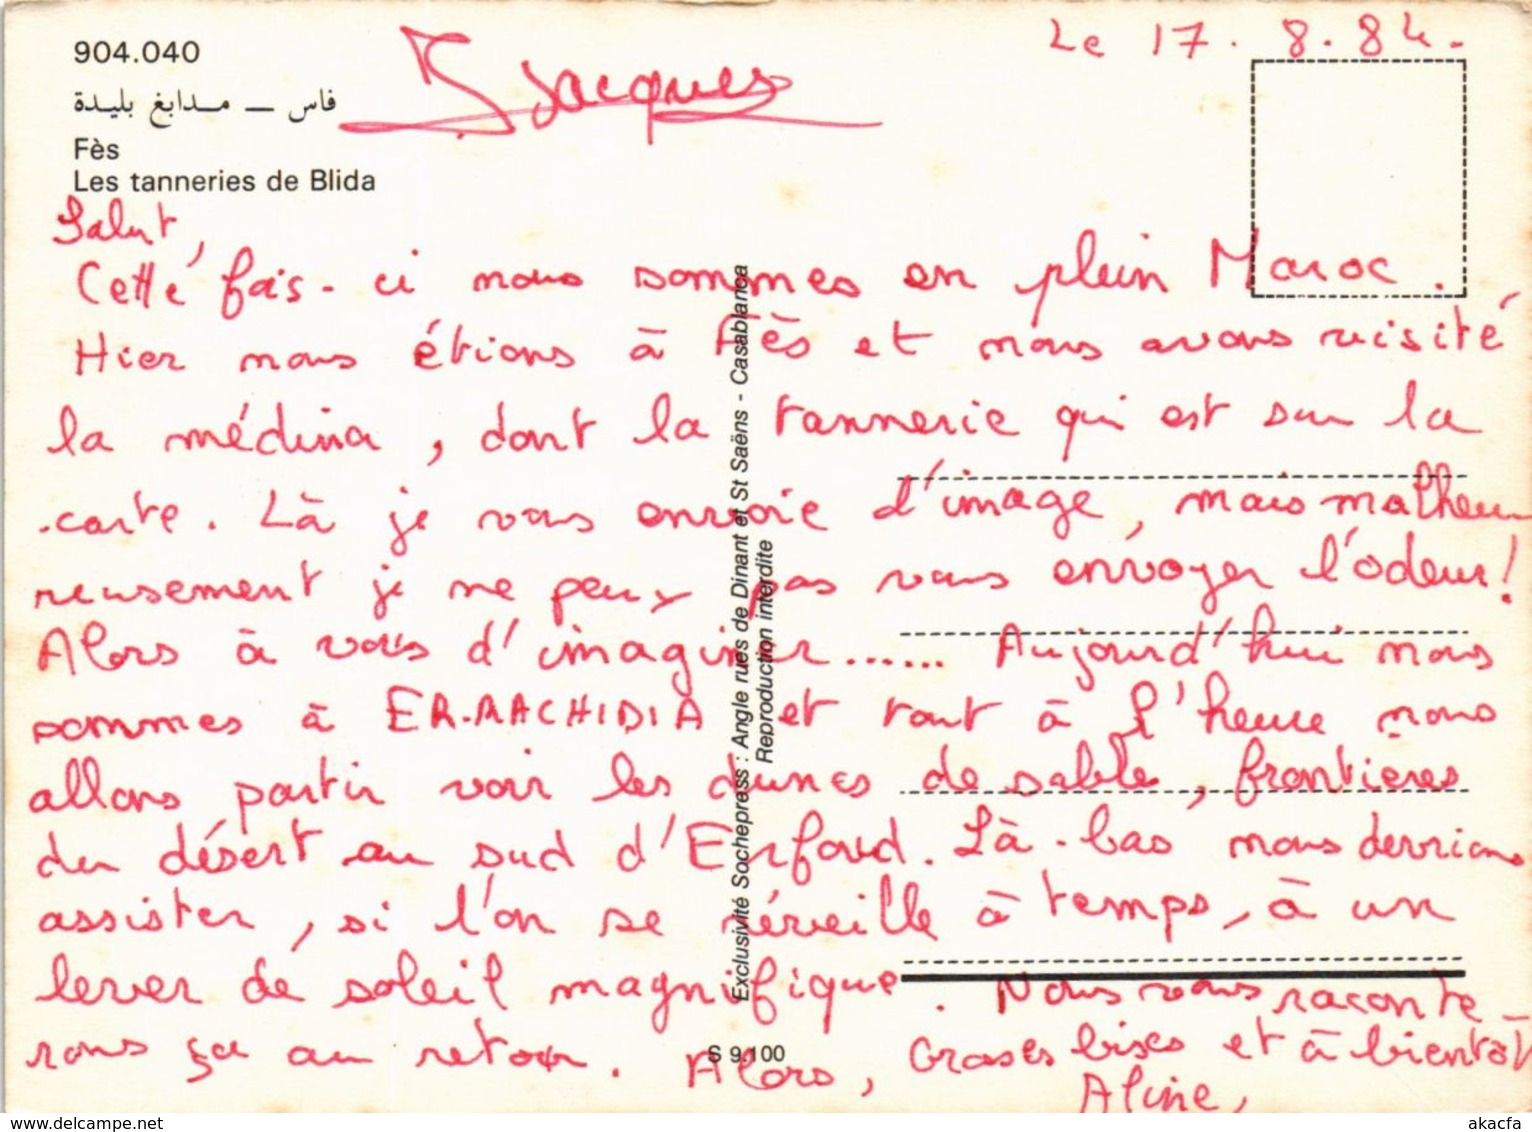 904.040
فاس — مدابغ بليدة
Fès
Les tanneries de Blida
Jacques
Le 17.8.84.
Salut,
Cette fois-ci nous sommes en plein Maroc.
Hier nous étions à Fès et nous avons visité
la médina, dont la tannerie qui est sur la
carte. Là je vous envoie d'image, mais malheu
reusement je ne peux pas vous envoyer l'odeur!
Alors à vous d'imaginer...... Aujourd'hui nous
sommes à ER-RACHIDIA et tout à l'heure nous
allons partir voir les dunes de sable, frontières
du désert au sud d'Erfoud. Là-bas nous devrions
assister, si l'on se réveille à temps, à un
lever de soleil magnifique. Nous vous raconte-
rons ça au retour. Alors, Grosses bises et à bientôt
Aline,
Exclusivité Sochepress : Angle rues de Dinant et St Saëns - Casablanca
Reproduction interdite
S 9.100
www.delcampe.net
akacfa